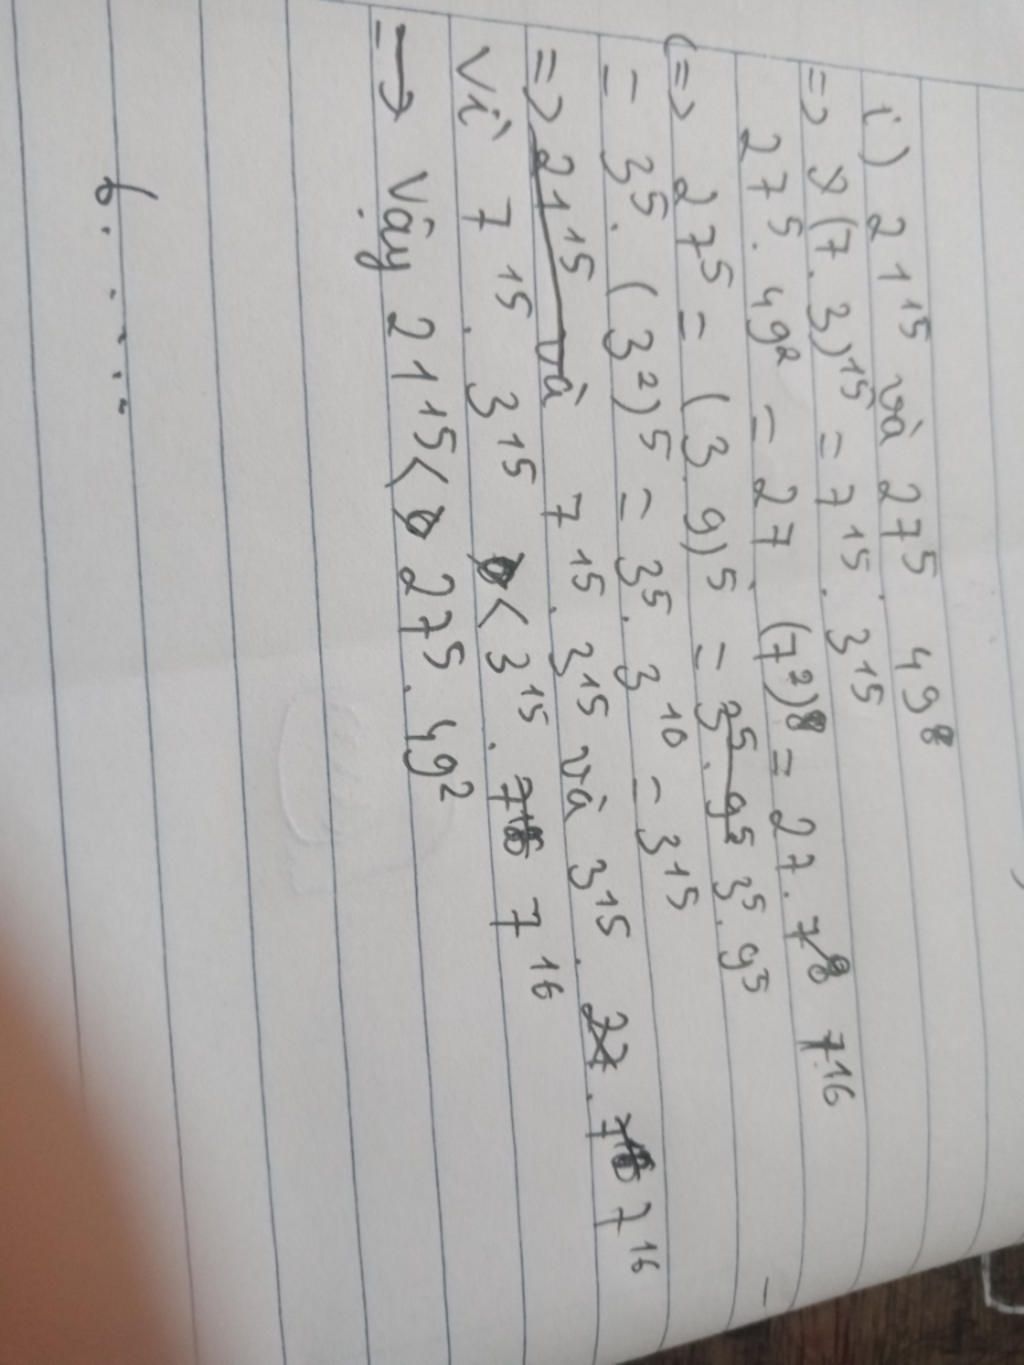 i) 21¹⁵ và 27⁵. 49⁸
=> (7.3)¹⁵ = 7¹⁵. 3¹⁵
27⁵. 49² = 27. (7²)⁸ = 27. 7¹⁶
(=> 27⁵ = (3.9)⁵ = 3⁵. 9⁵ 3⁵. 9⁵
= 3⁵. (3²)⁵ = 3⁵. 3¹⁰ = 3¹⁵
=> 21¹⁵ và 7¹⁵. 3¹⁵ và 3¹⁵. 27. 7¹⁶
Vì 7¹⁵. 3¹⁵ < 3¹⁵. 7¹⁶
=> Vậy 21¹⁵ < 27⁵. 49²
6. .....